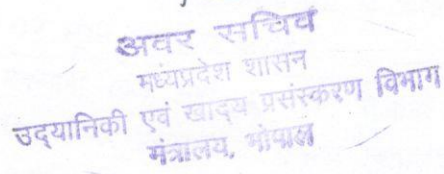 अवर सचिव
मध्यप्रदेश शासन
उद्यानिकी एवं खाद्य प्रसंस्करण विभाग
मंत्रालय, भोपाल